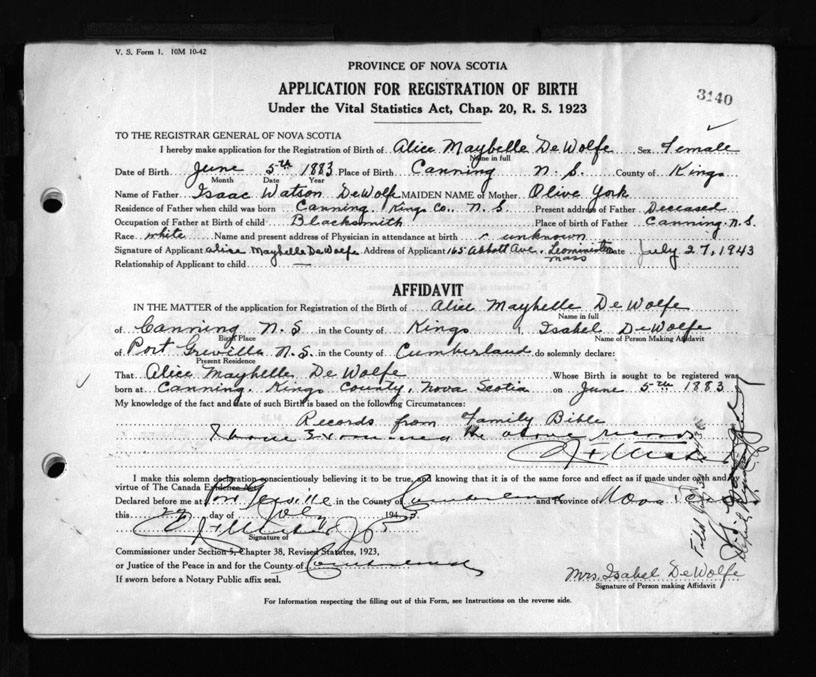 V. S. Form 1. 10M 10-42
PROVINCE OF NOVA SCOTIA
APPLICATION FOR REGISTRATION OF BIRTH
3140
Under the Vital Statistics Act, Chap. 20, R. S. 1923
TO THE REGISTRAR GENERAL OF NOVA SCOTIA
I hereby make application for the Registration of Birth of Alice Maybelle DeWolfe Sex Female
Name in full
Date of Birth June 5th 1883 Place of Birth Canning N. S. County of Kings
Month Date Year
Name of Father Isaac Watson DeWolf MAIDEN NAME of Mother Olive York
Residence of Father when child was born Canning Kings Co., N. S. Present address of Father Deceased
Occupation of Father at Birth of child Blacksmith Place of birth of Father Canning N. S.
Race white Name and present address of Physician in attendance at birth unknown
Signature of Applicant Alice Maybelle DeWolfe Address of Applicant 165 Abbott Ave., Leominster Mass Date July 27, 1943
Relationship of Applicant to child
AFFIDAVIT
IN THE MATTER of the application for Registration of the Birth of Alice Maybelle DeWolfe
Name in full
of Canning N. S. in the County of Kings I, Isabel DeWolfe
Birth Place Name of Person Making Affidavit
of Port Greville N. S. in the County of Cumberland do solemnly declare:
Present Residence
That Alice Maybelle DeWolfe Whose Birth is sought to be registered was
born at Canning, Kings County, Nova Scotia on June 5th 1883
My knowledge of the fact and date of such Birth is based on the following Circumstances:
Records from Family Bible
I have examined the above records
I make this solemn declaration conscientiously believing it to be true, and knowing that it is of the same force and effect as if made under oath and by
virtue of The Canada Evidence Act
Declared before me at Port Greville in the County of Cumberland and Province of Nova Scotia
this 29 day of July 1943
Signature of
Commissioner under Section 5, Chapter 38, Revised Statutes, 1923,
or Justice of the Peace in and for the County of Cumberland
If sworn before a Notary Public affix seal.
Mrs. Isabel DeWolfe
Signature of Person making Affidavit
For Information respecting the filling out of this Form, see Instructions on the reverse side.